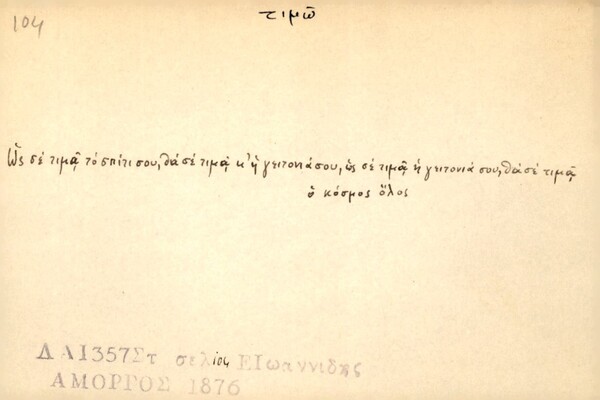 104
τιμῶ
Ὡς σέ τιμᾷ τό σπίτι σου, θά σέ τιμᾷ κ' ἡ γειτονιά σου, ὡς σέ τιμᾷ ἡ γειτονιά σου, θά σέ τιμᾷ
ὁ κόσμος ὅλος
ΔΑ1357Στ σελ 104 ΕΙωαννιδης
ΑΜΟΡΓΟΣ 1876